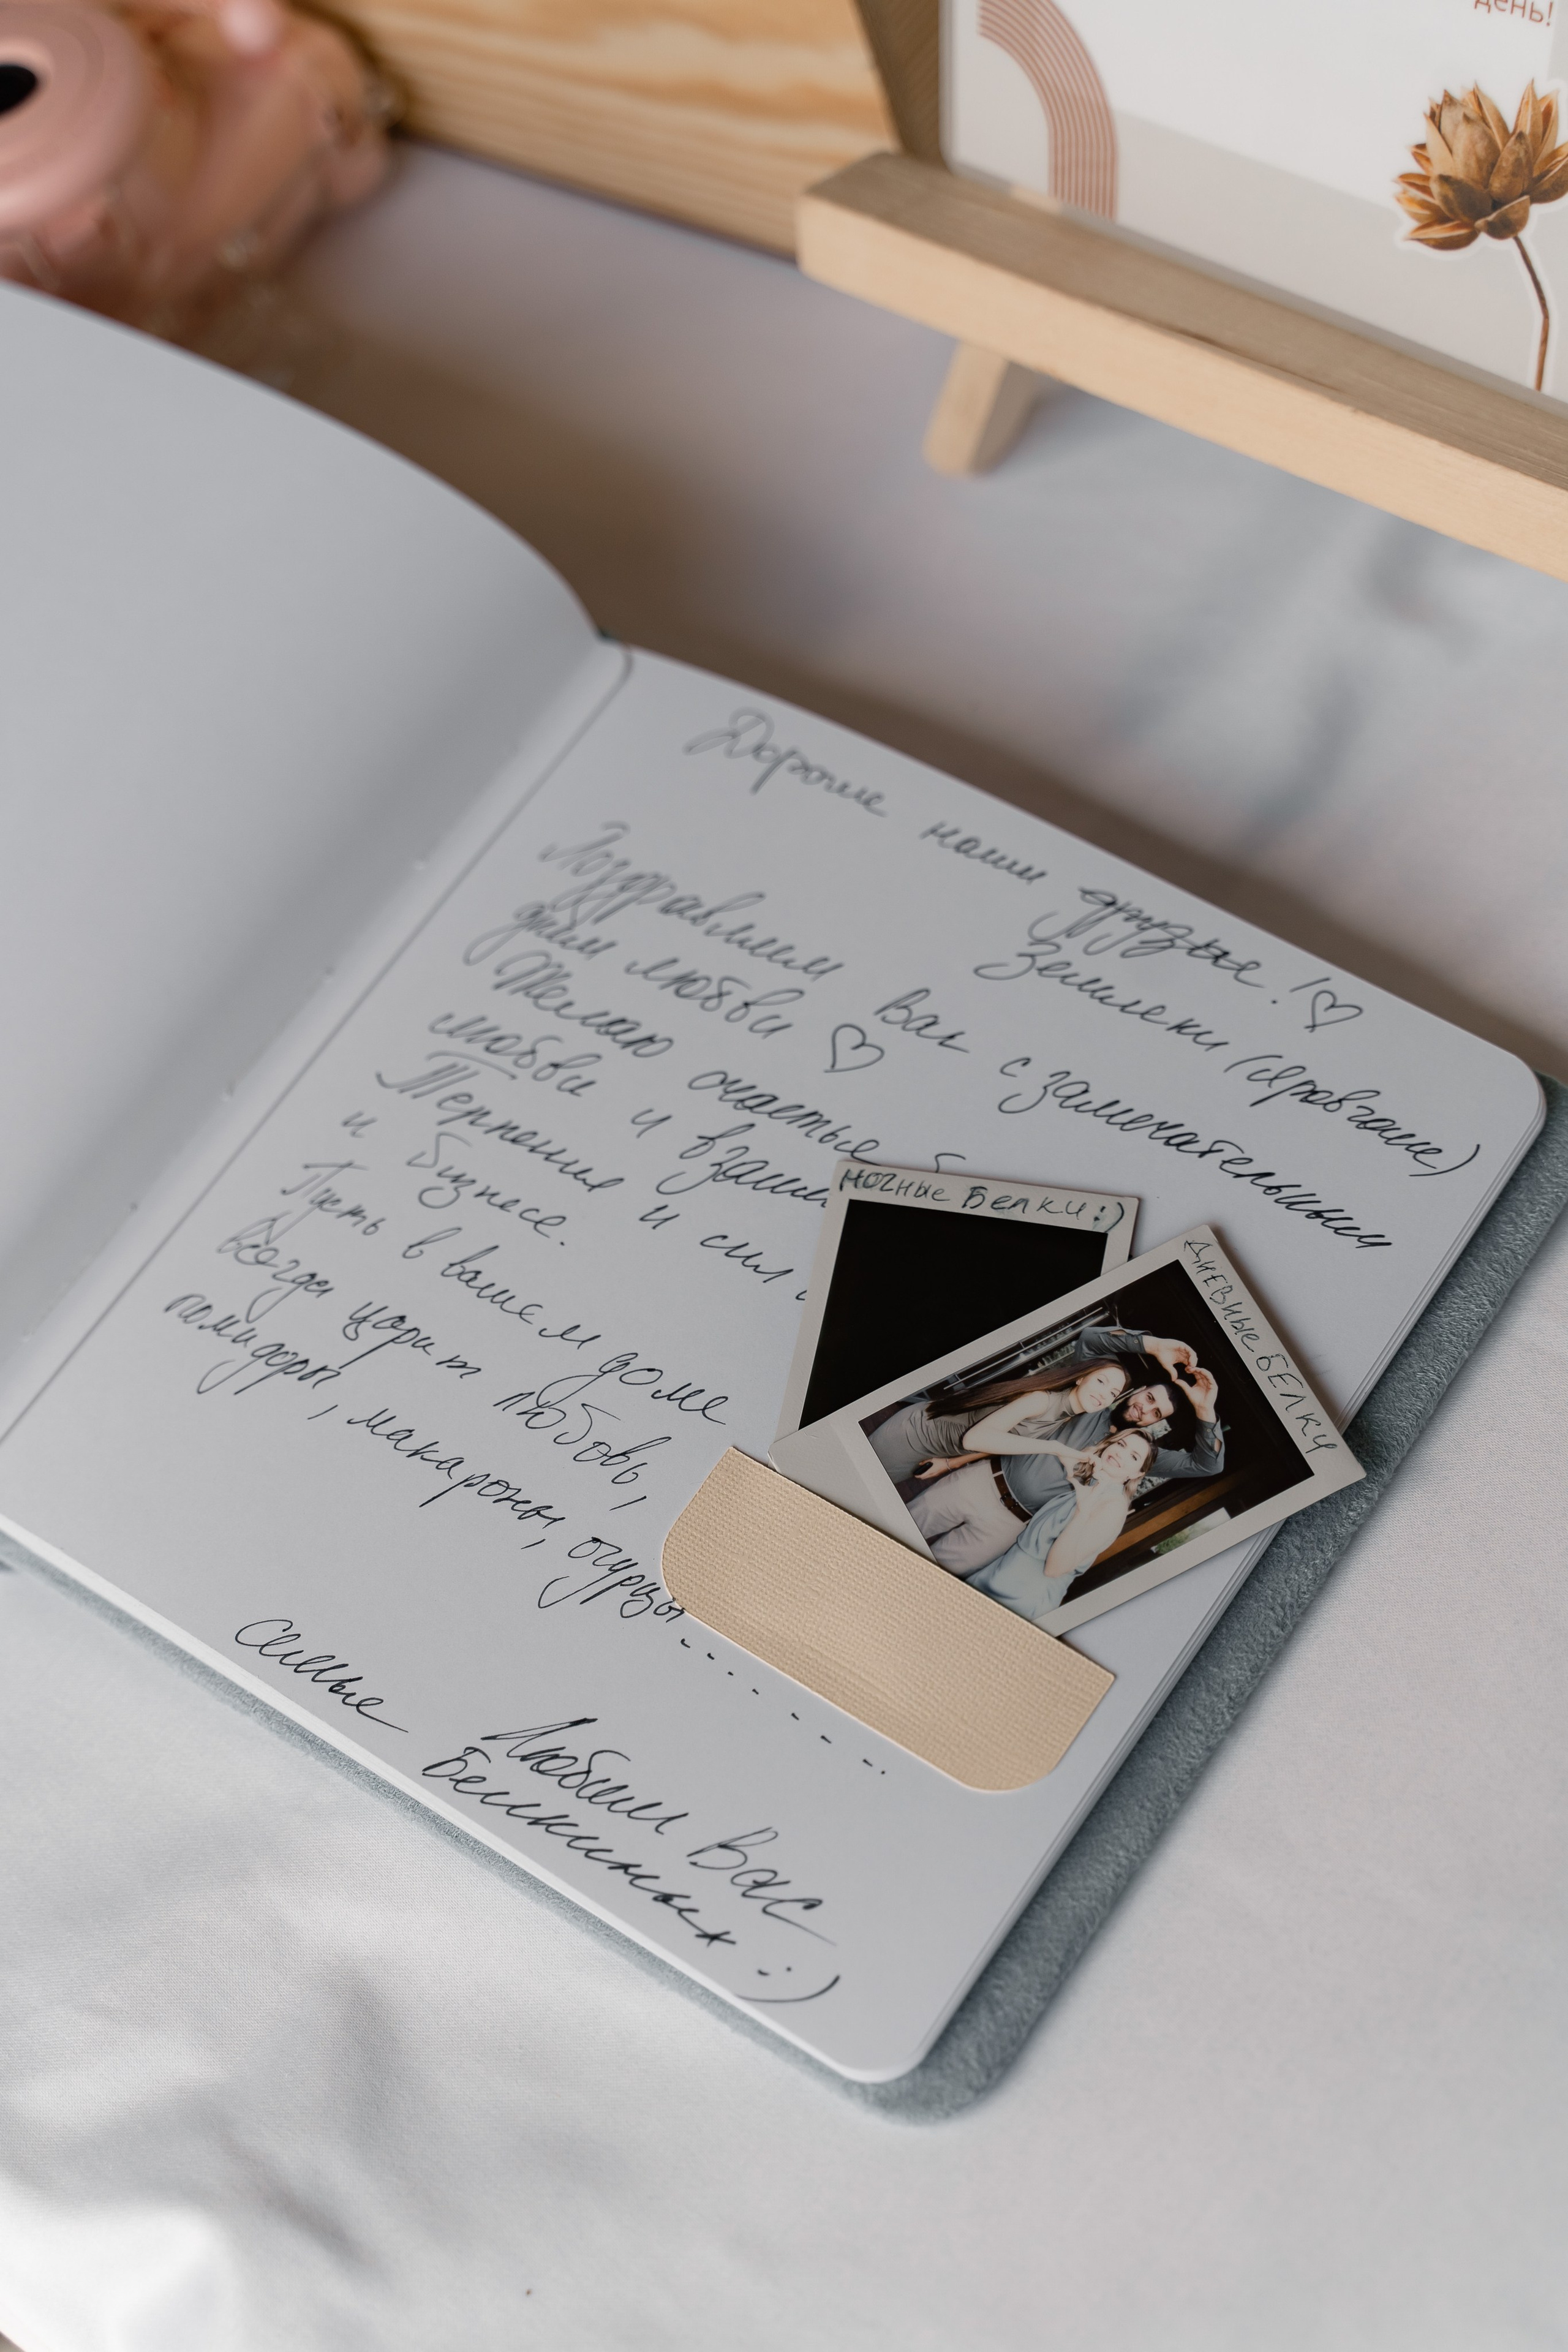 день!
Дорогие наши друзья!♡
Земляки (
Поздравляем Вас с замечательным
днём любви ♡
Желаю счастье
любви и взаим
Терпения и сил
и бизнесе.
Пусть в вашем доме
всегда царит любовь,
помидоры, макароны, огурцы.........
Любим Вас
семье Белкиных :)
ночные Белки:)
дневные Белки